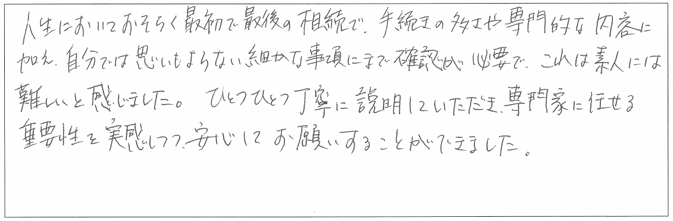 人生においておそらく最初で最後の相続で、手続きの多さや専門的な内容に
加え、自分では思いもよらない細かな事項にまで確認が必要で、これは素人には
難しいと感じました。ひとつひとつ丁寧に説明していただき、専門家に任せる
重要性を実感しつつ、安心してお願いすることができました。